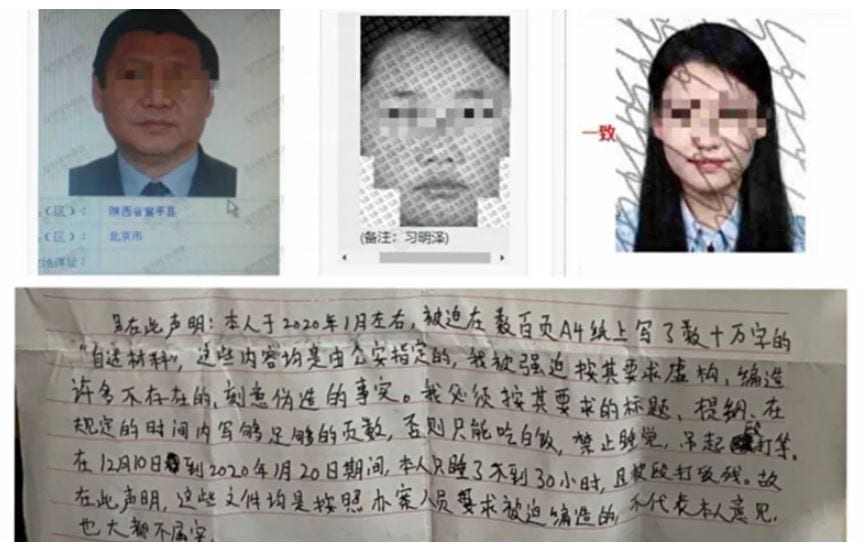 (区)： 陕西省富平县
(区)： 北京市
(备注：习明泽)
一致
另在此声明：本人于2020年1月左右，被迫在数百页A4纸上写了数十万字的
“自述材料”，这些内容均是由公安指定的，我被强迫按其要求虚构、编造
许多不存在的、刻意伪造的事实。我必须按其要求的标题、提纲、在
规定的时间内写够足够的页数，否则只能吃白饭，禁止睡觉，吊起殴打等。
在12月10日到2020年1月20日期间，本人只睡了不到30小时，且被殴打致残。故
在此声明，这些文件均是按照办案人员要求被迫编造的，不代表本人意见，
也大都不属实。